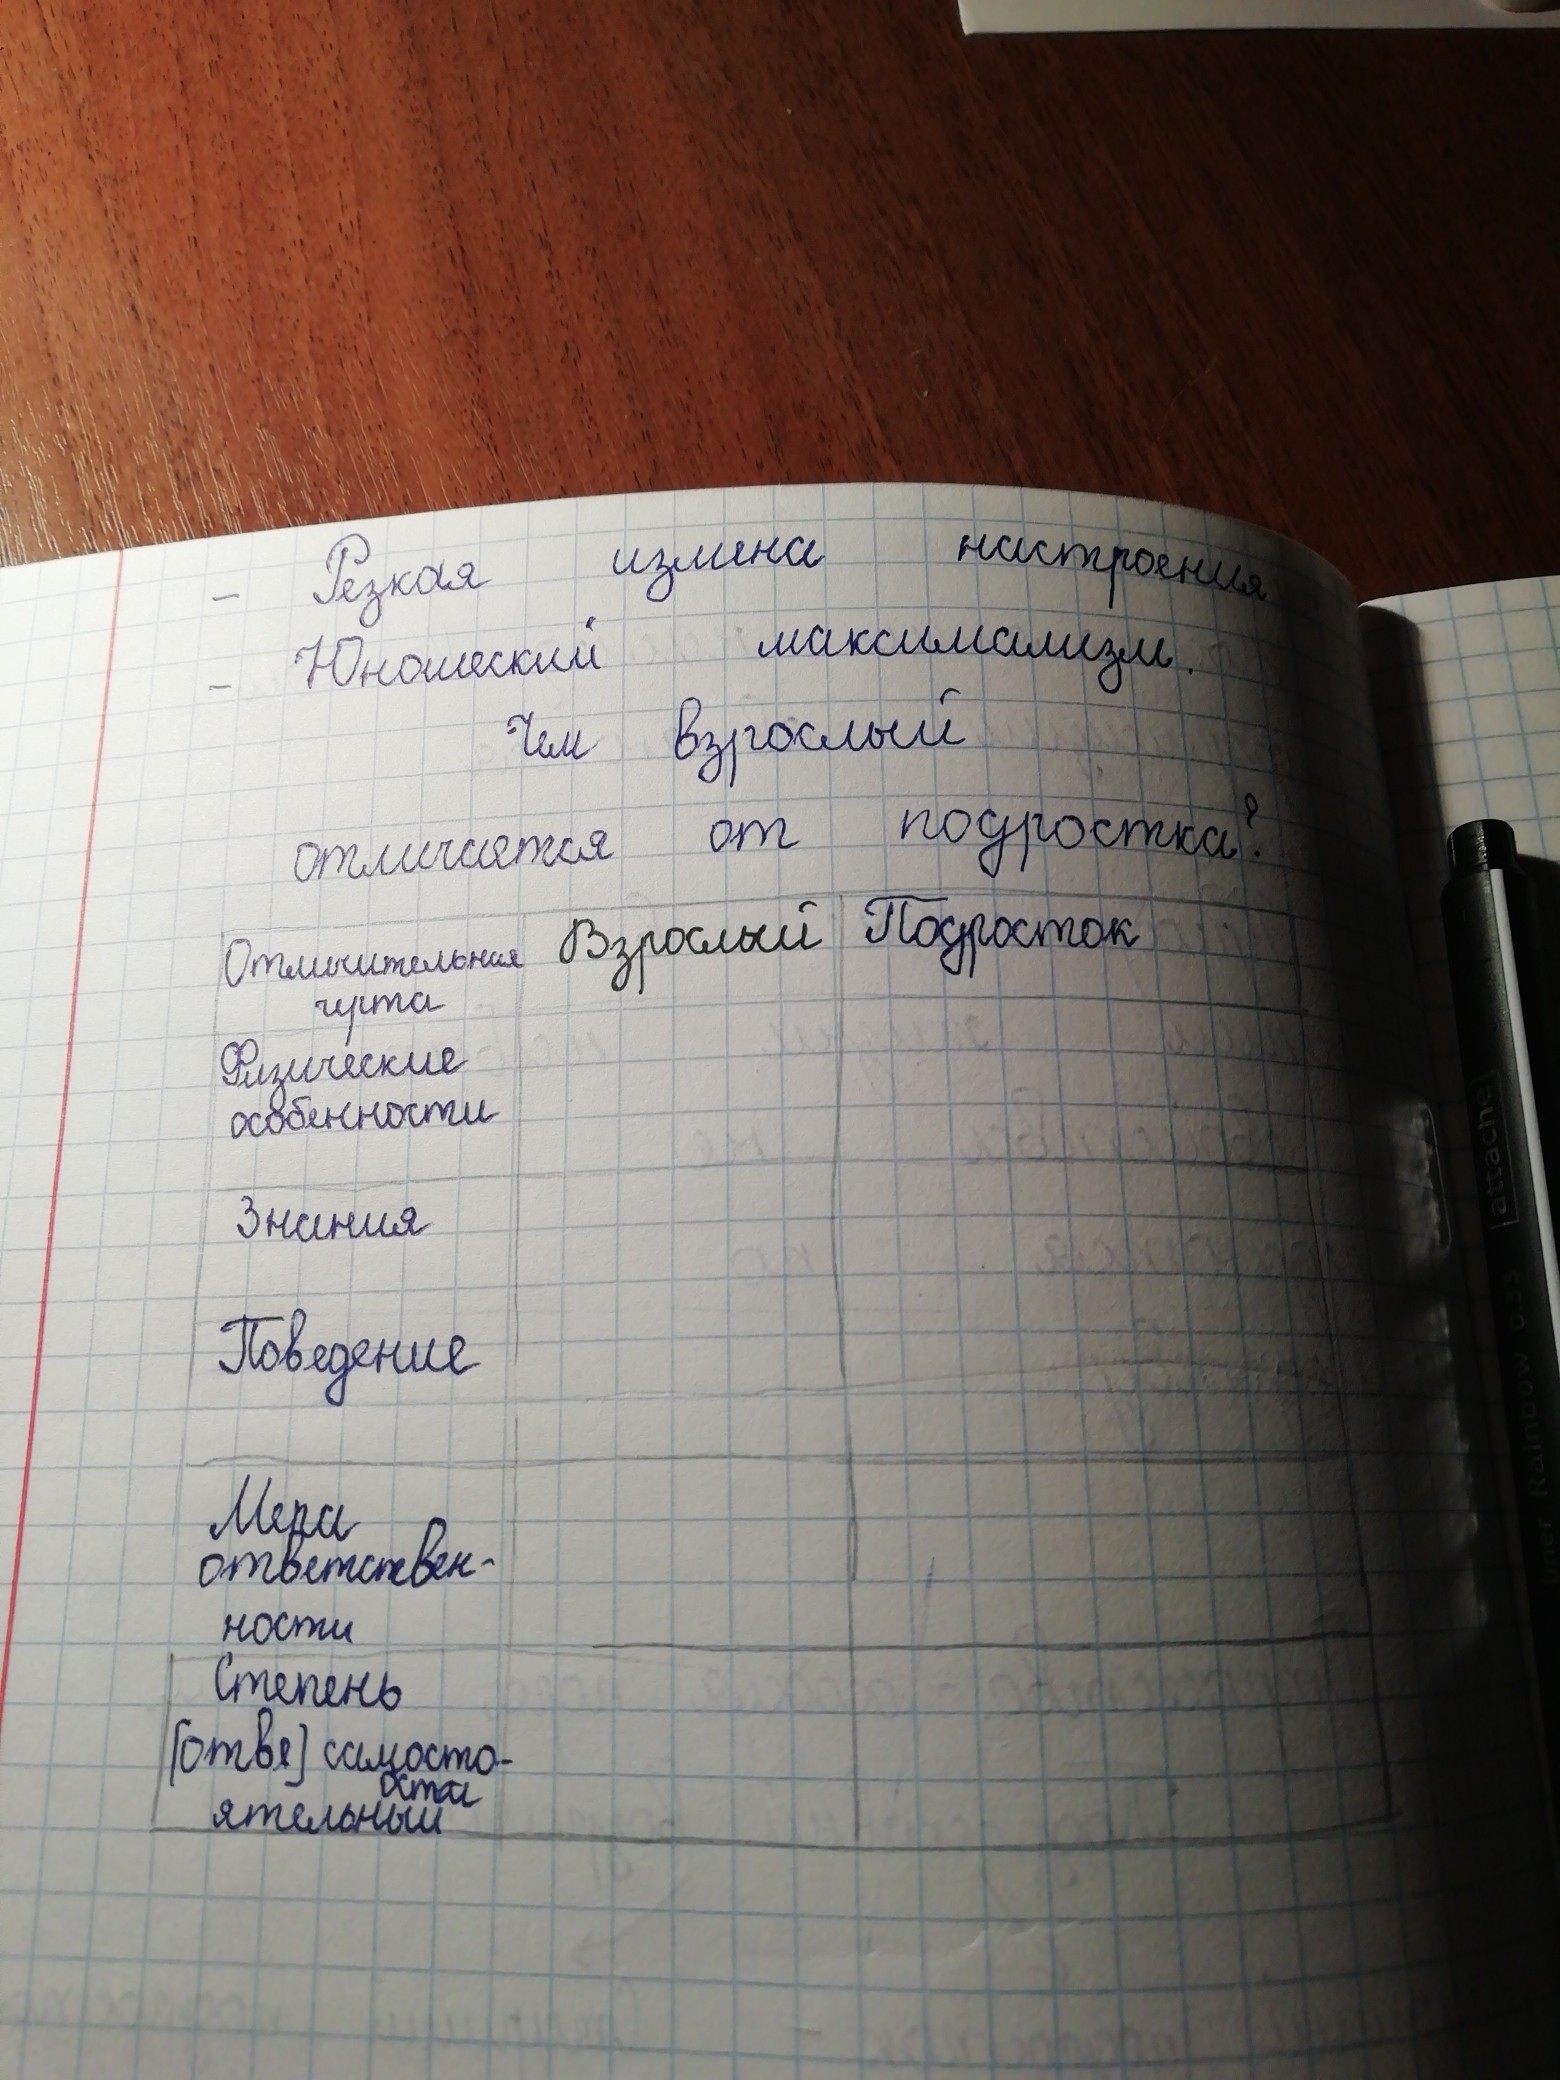 - Резкая измена настроения
- Юношеский максимализм.
Чем взрослый
отличается от подростка?
Отличительная черта
Взрослый
Подросток
Физические
особенности
Знания
Поведение
Мера
ответствен-
ности
Степень
[отве] самосто-
ости
ятельный
attache
Rainbow 0.33